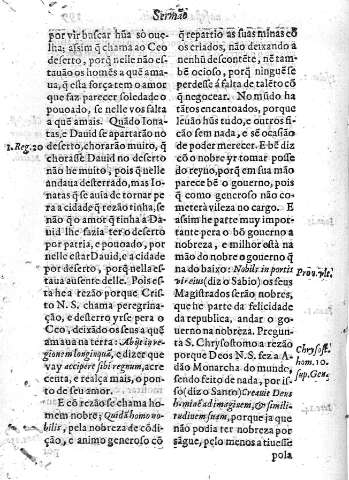 Sermão
por vir buscar hũa só oue-
lha; assim q̃ chama ao Ceo
deserto, porq̃ nelle não es-
tauão os homẽs a quẽ ama-
ua, q̃ esta força tem o amor
que faz parecer soledade o
pouoado, se nelle vos falta
a quem amais. Quãdo Iona-
tas, e Dauid se apartarão no
1. Reg. 20
deserto, chorarão muito, q̃
chorasse Dauid no deserto
não he muito, pois q̃ nelle
andaua desterrado, mas Io-
natas q̃ se auia de tornar pe-
ra a cidade q̃ rezão tinha, se
não q̃ o amor q̃ tinha a Da-
uid lhe fazia ter o deserto
por patria, e pouoado, por
nelle estar Dauid, e a cidade
por deserto, porq̃ nella es-
taua ausente delle. Pois es-
ta he a rezão porque Cris-
to N. S. chama peregrina-
ção, e desterro yrse pera o
Ceo, deixãdo os seus a quẽ
amaua na terra: Abijt in re-
gionem longinquã, e dizer que
vay accipere sibi regnum, acre
centa, e realça mais, o pon-
to de seu amor.
E cõ rezão se chama ho-
mem nobre; Quidã homo no-
bilis, pela nobreza de cõdi-
ção, e animo generoso cõ
q̃ repartio as suas minas cõ
os criados, não deixando a
nenhũ descõtẽte, nẽ tam-
bẽ ocioso, porq̃ ninguẽ se
perdesse á falta de talẽto cõ
q̃ negocear. No mũdo ha
tãtos encantoados, porque
leuão hũs tudo, e outros fi-
cão sem nada, e sẽ ocasião
de poder merecer. E bẽ diz
cõ o nobre yr tomar posse
do reyno, porq̃ em sua mão
parece bẽ o governo, pois
q̃ como generoso não co-
meterá vileza no cargo. E
assim he parte muy impor-
tante pera o bõ gouerno a
nobreza, e milhor està na
mão do nobre o gouerno q̃
na do baixo: Nobilis in portis
Prou. vlt.
vir eius (diz o Sabio) os seus
Magistrados serão nobres,
que he parte da felicidade
da republica, andar o go-
uerno na nobreza. Pregun-
ta S. Chrysostomo a rezão
Chrysost.
porque Deos N. S. fez a A-
hom. 10.
dão Monarcha do mundo,
sup. Gen.
sendo feito de nada, por is-
so (diz o Santo) Creauit Deus
hominẽ ad imaginem, & simili-
tudinem suam, porque ja que
não podia ter nobreza por
sãgue, pelo menos a tiuesse
pola